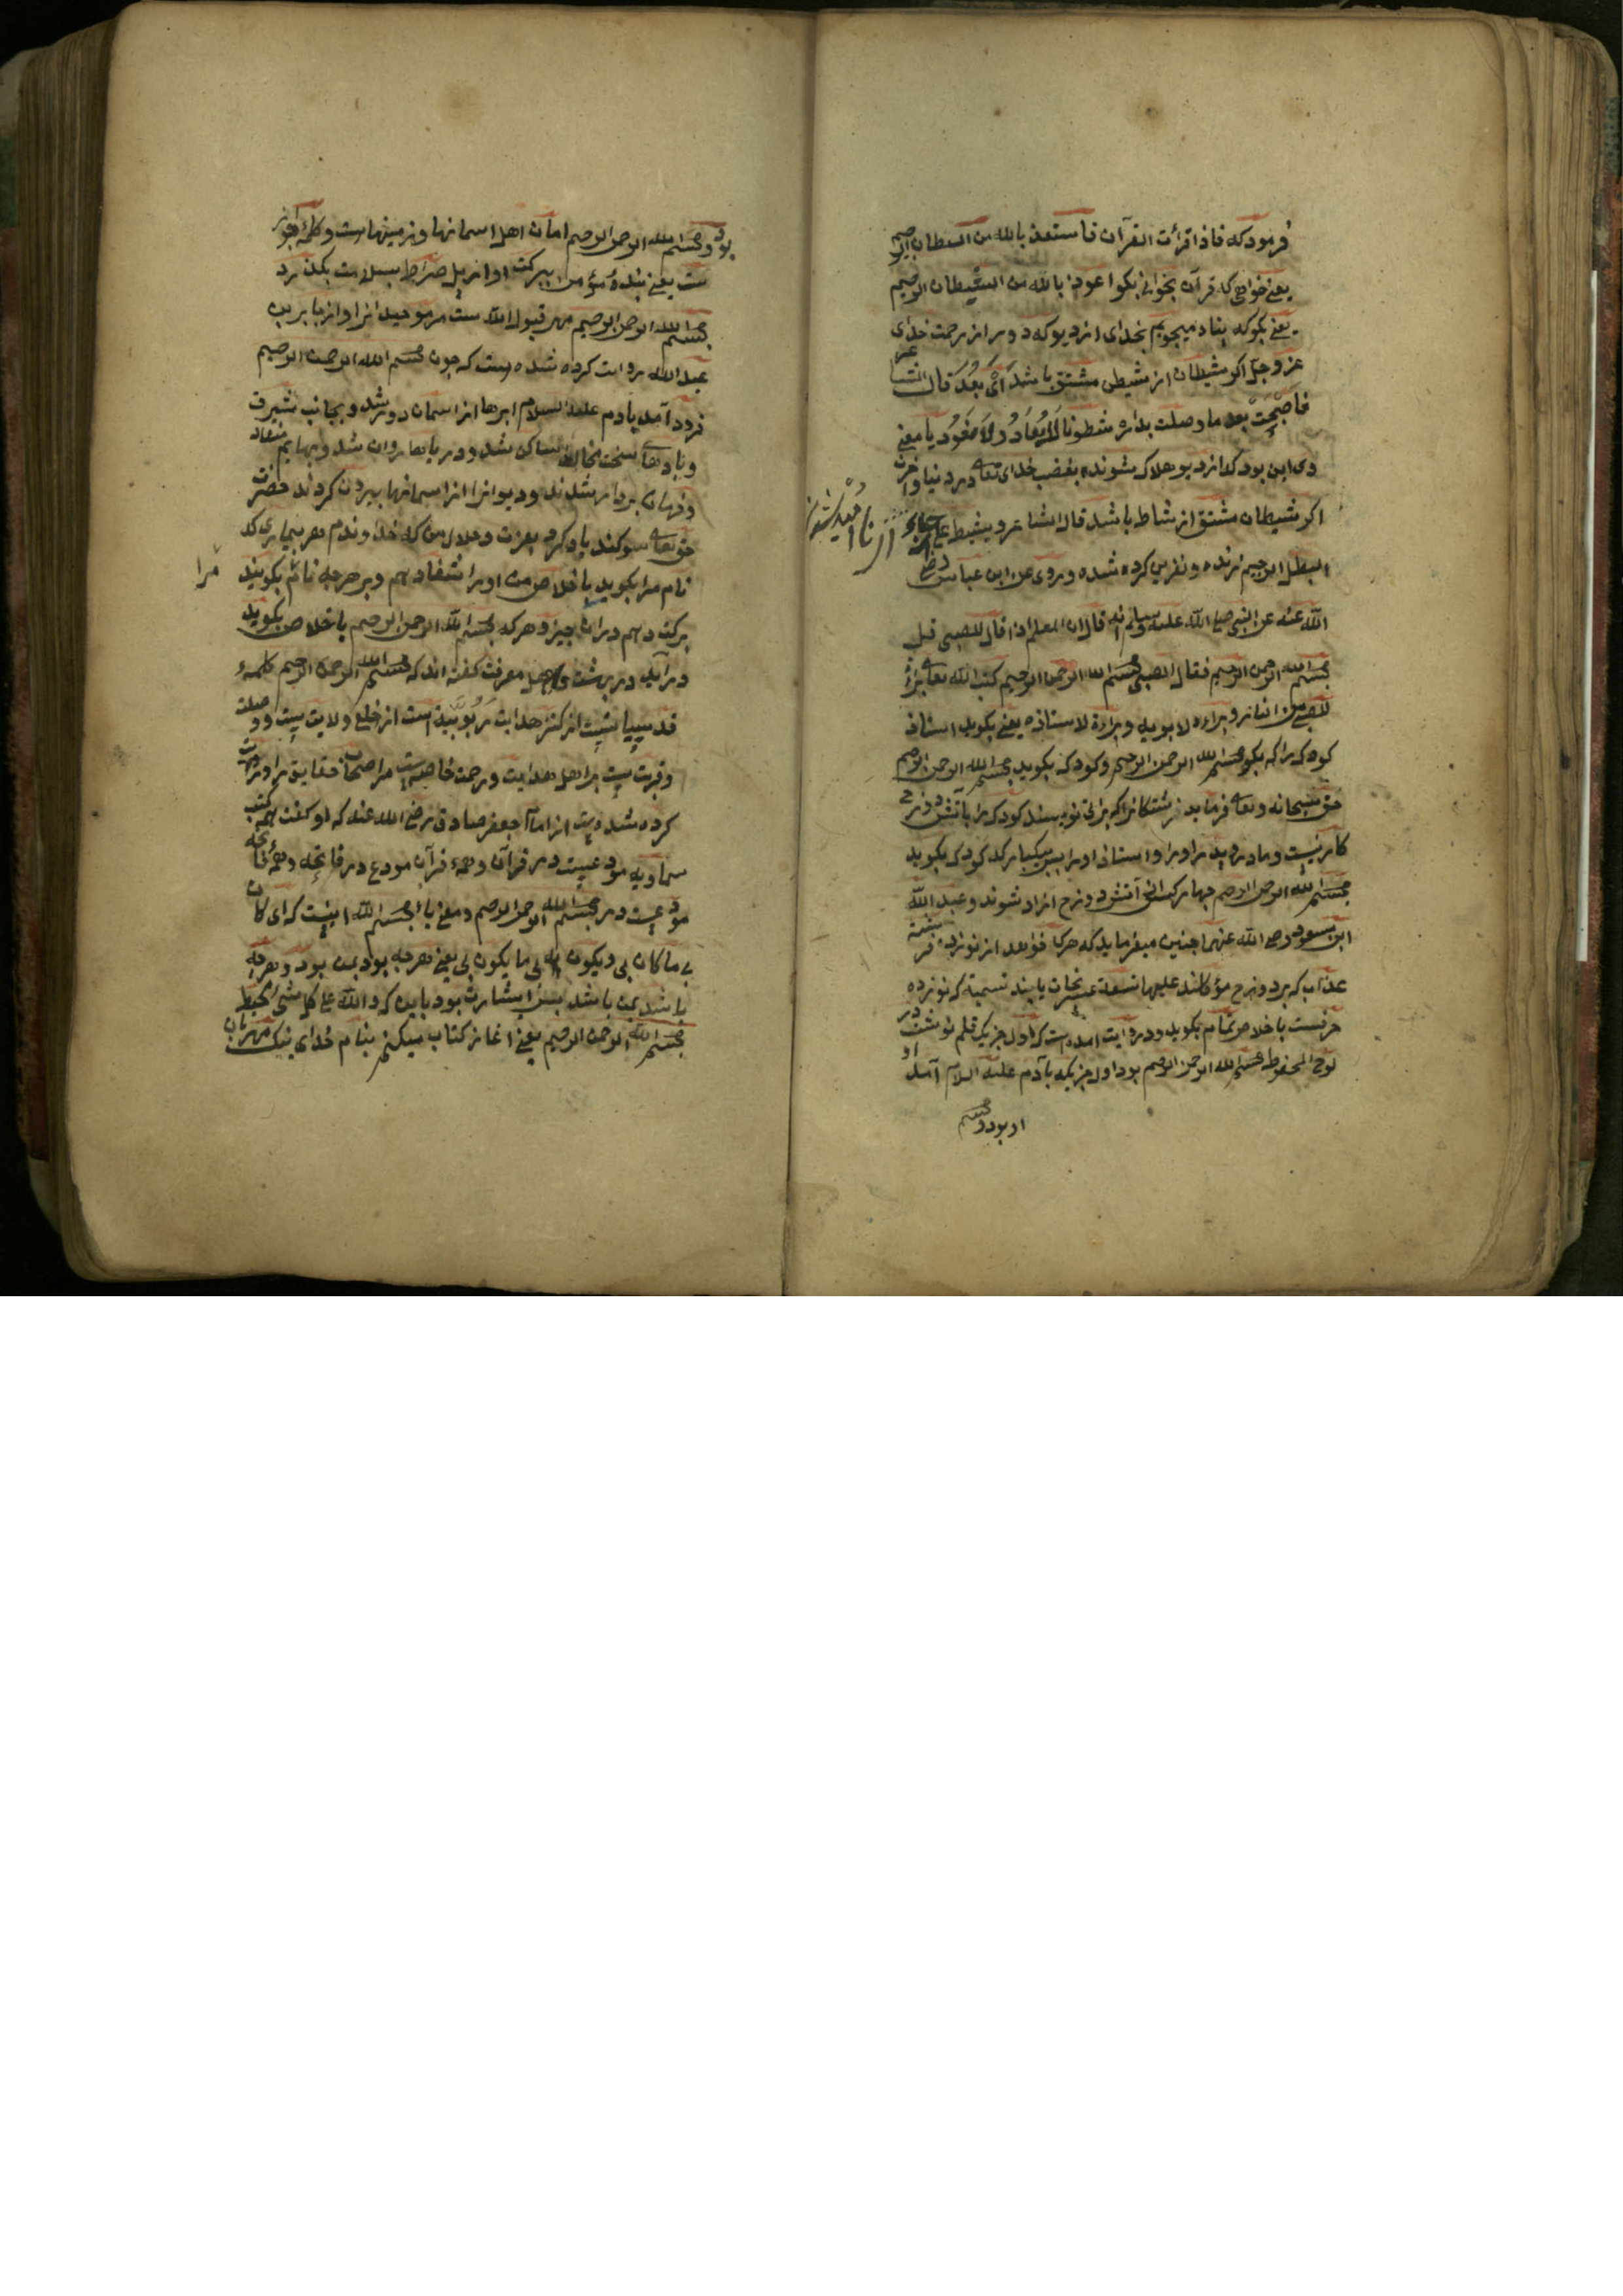 فرمود که فاذا قرأت القرآن فاستعذ بالله من الشيطان الرجيم
يعنى خواهى که قرآن بخوانى بکو اعوذ بالله من الشيطان الرجيم
يعنى بکو که پناه ميجويم بخداى از ديو که دور از رحمت خداى
عز و جل اکر شيطان از شيطن مشتق باشد اى بعد قال الشاعر
فاصبحت بعد ما وصلت بدار شطونا لا تعاد ولا تعود يا معنى
وى اين بود که از ديو هلاک شونده بغضب خداى تعالى در دنيا و آخرت
اکر شيطان مشتق از شاط باشد قال الشاعر و يشيط على
البطل الرجيم رنده و نفرين کرده شده و روى عن ابن عباس رضى
الله عنه عن النبى صلى الله عليه و سلم انه قال ان المعلم اذا قال للصبى قل
بسم الله الرحمن الرحيم فقال الصبى بسم الله الرحمن الرحيم کتب الله تعالى براءة
للصبى من النار و براءة لابويه و براءة لاستاذه يعنى بکويد استاذ
کودک را که بکو بسم الله الرحمن الرحيم و کودک بکويد بسم الله الرحمن الرحيم
حق سبحانه و تعالى فرمايد فرشتکانرا که براتى نويسند کودک را باتش دوزخ
کار نيست و مادر و پدر او را و استاذ او را ببرکت آنکه کودک بکويد
بسم الله الرحمن الرحيم چهار کس از آتش دوزخ ازاد شوند و عبد الله
ابن مسعود رضى الله عنهما چنين ميفرمايد که هرکه خواهد از نوزده فرشته
عذاب که بر دوزخ موکلند عليها تسعة عشر نجات يابند تسمية که نوزده
حرفست باخلاص تمام بکويد و در روايت امده است که اول چيزيکه قلم نوشت در
لوح المحفوظ بسم الله الرحمن الرحيم بود اول چيزيکه بآدم عليه السلام آمد او
او بود و بسم
بود و بسم الله الرحمن الرحيم امان اهل اسمانها و زمينهاست و کلمه جواز
ست يعنى بنده مؤمن ببرکت او از پل صراط بسلامت بکذرد
بسم الله الرحمن الرحيم مهر قبول الله ست مر موحدانرا و از جابر بن
عبد الله روايت کرده شده است که چون بسم الله الرحمن الرحيم
فرود آمد بادم عليه السلام ابرها از اسمان دور شد و بجانب شرق
و بادهاى سخت مخالف ساکن شد و درياها روان شد و بهايم منقاد
و فرمان بردار شدند و ديوانرا از اسمانها بيرون کردند حضرت
حق تعالى سوکند ياد کرد بعزت و جلال من که خداوندم هر بيمارى که
نام مرا بکويد باخلاص من او را شفا دهم و بر هرچه نام بکويند
مرا
برکت دهم در ان چيز و هرکه بسم الله الرحمن الرحيم باخلاص بکويد
درآيد در بهشت و اهل معرفت کفته اند که بسم الله الرحمن الرحيم کلمه
قدسيه ايست از کنز هدايت ربوبيه است از خلع ولايت يست و وصلت
و قربت يست مر اهل هدايت و رحمت خاصه يست مر اصحاب حقايق را و روايت
کرده شده است از امام جعفر صادق رضى الله عنه که او کفت همه کتب
سماويه مودعيست در قرآن و همه قرآن مودع در فاتحه و همه فاتحه
مودعيست در بسم الله الرحمن الرحيم و معنى با بسم الله اينست که اى کان
بى ما کان بى و يکون بى ما يکون بى يعنى هرچه بود بمن بود و هرچه
باشد بمن باشد بس اشارت بود باين که و الله على کل شئ محيط
بسم الله الرحمن الرحيم يعنى اغاز کتاب ميکنم بنام خداى نيک مهربان